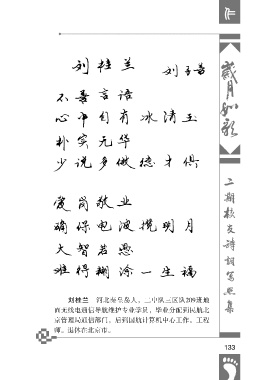 刘桂兰 刘玉善
不善言语
心中自有冰清玉
朴实无华
少说多做德才俱
爱岗敬业
确保电波揽明月
大智若愚
难得糊涂一生福
刘桂兰 河北秦皇岛人。二中队三区队209班地
面无线电通信导航维护专业学员，毕业分配到民航北
京管理局通信部门，后到民航计算机中心工作。工程
师。退休在北京市。
岁月如歌
二期校友诗词写照集
133